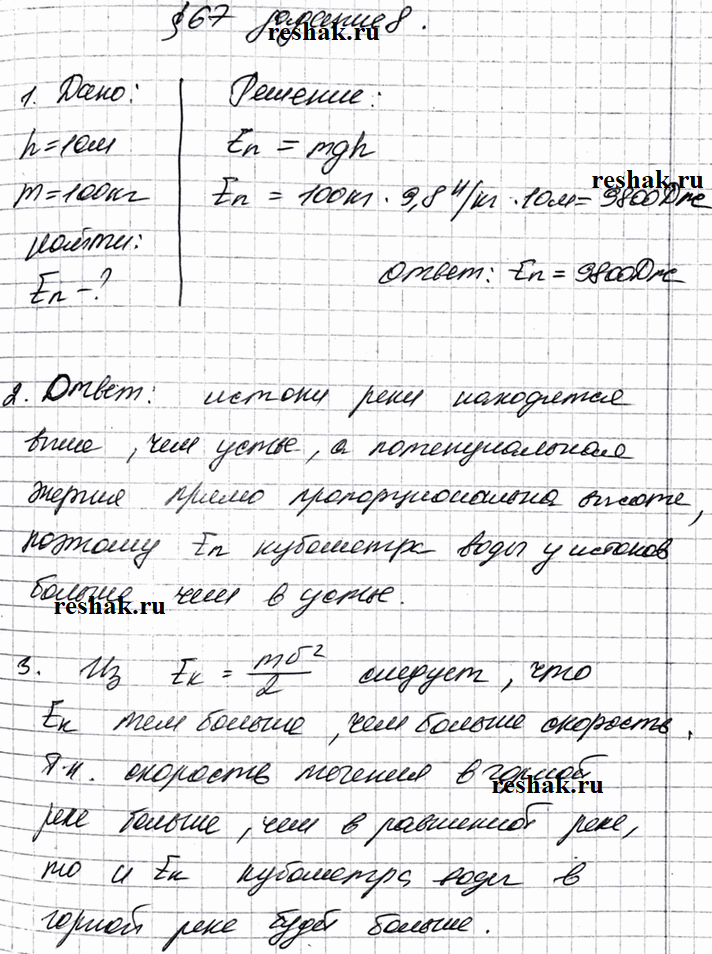 §67 задание 8.
reshak.ru
1. Дано:
h=10м
m=100кг
найти:
Eп-?
Решение:
Eп = mgh
reshak.ru
Eп = 100кг · 9,8 Н/кг · 10м= 9800Дж
Ответ: Eп = 9800Дж
2. Ответ: истоки реки находятся
выше, чем устье, а потенциальная
энергия прямо пропорциональна высоте,
поэтому Eп кубометра воды у истоков
больше чем в устье.
reshak.ru
3. Из Eк = mϑ²/2 следует, что
Eк тем больше, чем больше скорость.
Т.к. скорость течения в горной
reshak.ru
реке больше, чем в равнинной реке,
то и Eк кубометра воды в
горной реке будет больше.